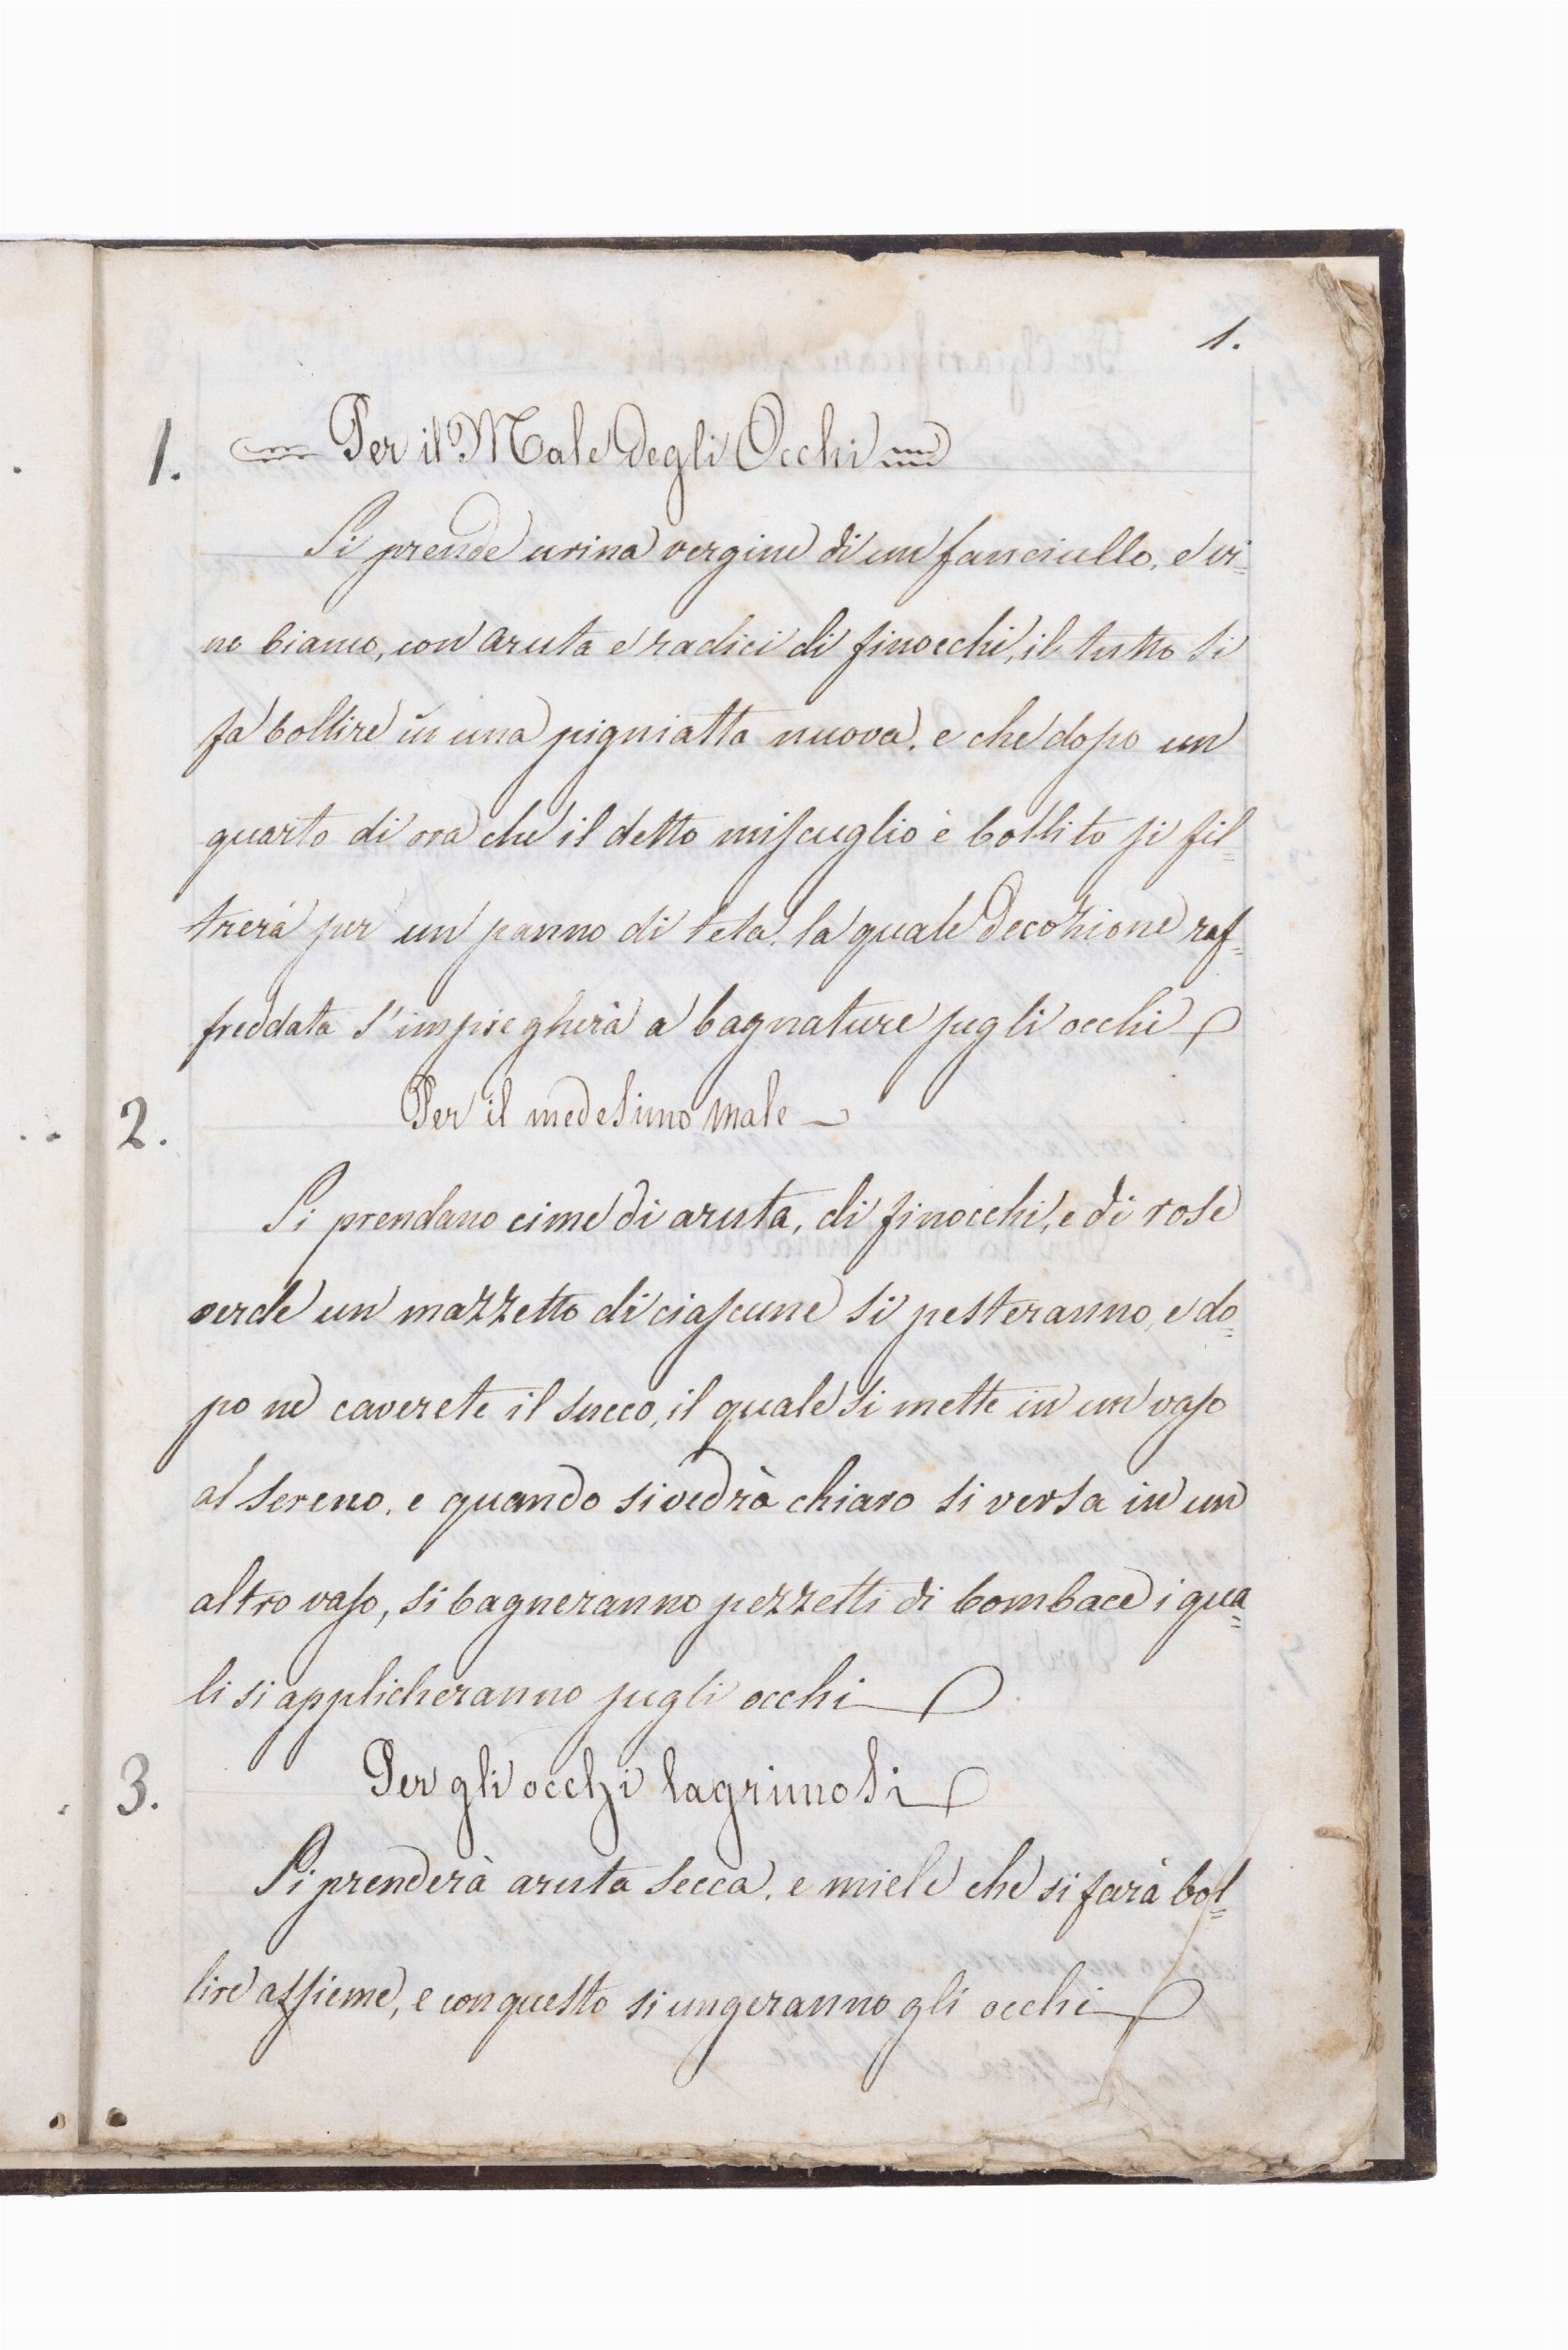 1.
1. Per il Male degli Occhi
Si prende urina vergine di un fanciullo, e vi=
no bianco, con aruta e radici di finocchi, il tutto si
fa bollire in una pigniatta nuova, e che dopo un
quarto di ora che il detto miscuglio è bollito si fil=
trerà per un panno di tela, la quale decozione raf=
freddata s'impiegherà a bagnature sugli occhi
2. Per il medesimo male
Si prendano cime di aruta, di finocchi, e di rose
verde un mazzetto di ciascune si pesteranno, e do=
po ne caverete il succo, il quale si mette in un vaso
al sereno, e quando si vedrà chiaro si versa in un
altro vaso, si bagneranno pezzetti di bombace i qua=
li si applicheranno sugli occhi
3. Per gli occhi lagrimosi
Si prenderà aruta secca, e miele che si farà bol=
lire assieme, e con questo si ungeranno gli occhi